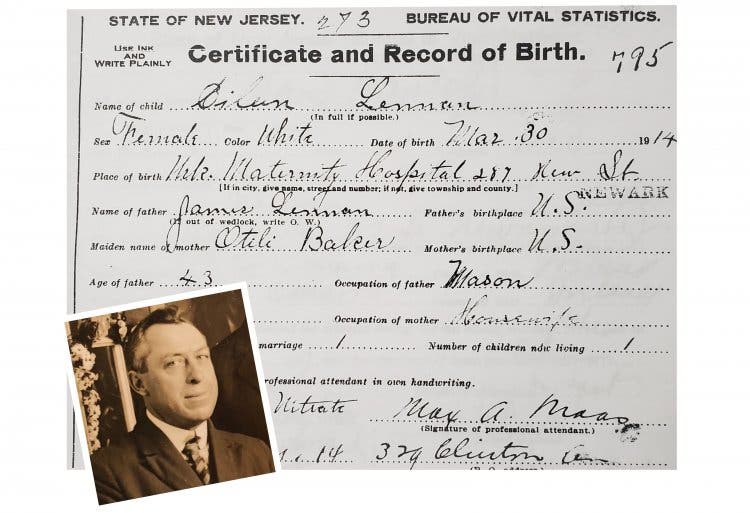 STATE OF NEW JERSEY. 273 BUREAU OF VITAL STATISTICS.
USE INK AND WRITE PLAINLY
Certificate and Record of Birth. 795
Name of child Eileen Lennan
(In full if possible.)
Sex Female Color White Date of birth Mar. 30 1914
Place of birth Nwk. Maternity Hospital 287 New St.
[If in city, give name, street and number; if not, give township and county.] NEWARK
Name of father James Lennan Father's birthplace U.S.
(If out of wedlock, write O. W.)
Maiden name of mother Otili Baker Mother's birthplace U.S.
Age of father 43 Occupation of father Mason
Occupation of mother Housewife
marriage 1 Number of children now living 1
professional attendant in own handwriting.
Max A. Maas
(Signature of professional attendant.)
14 329 Clinton Ave